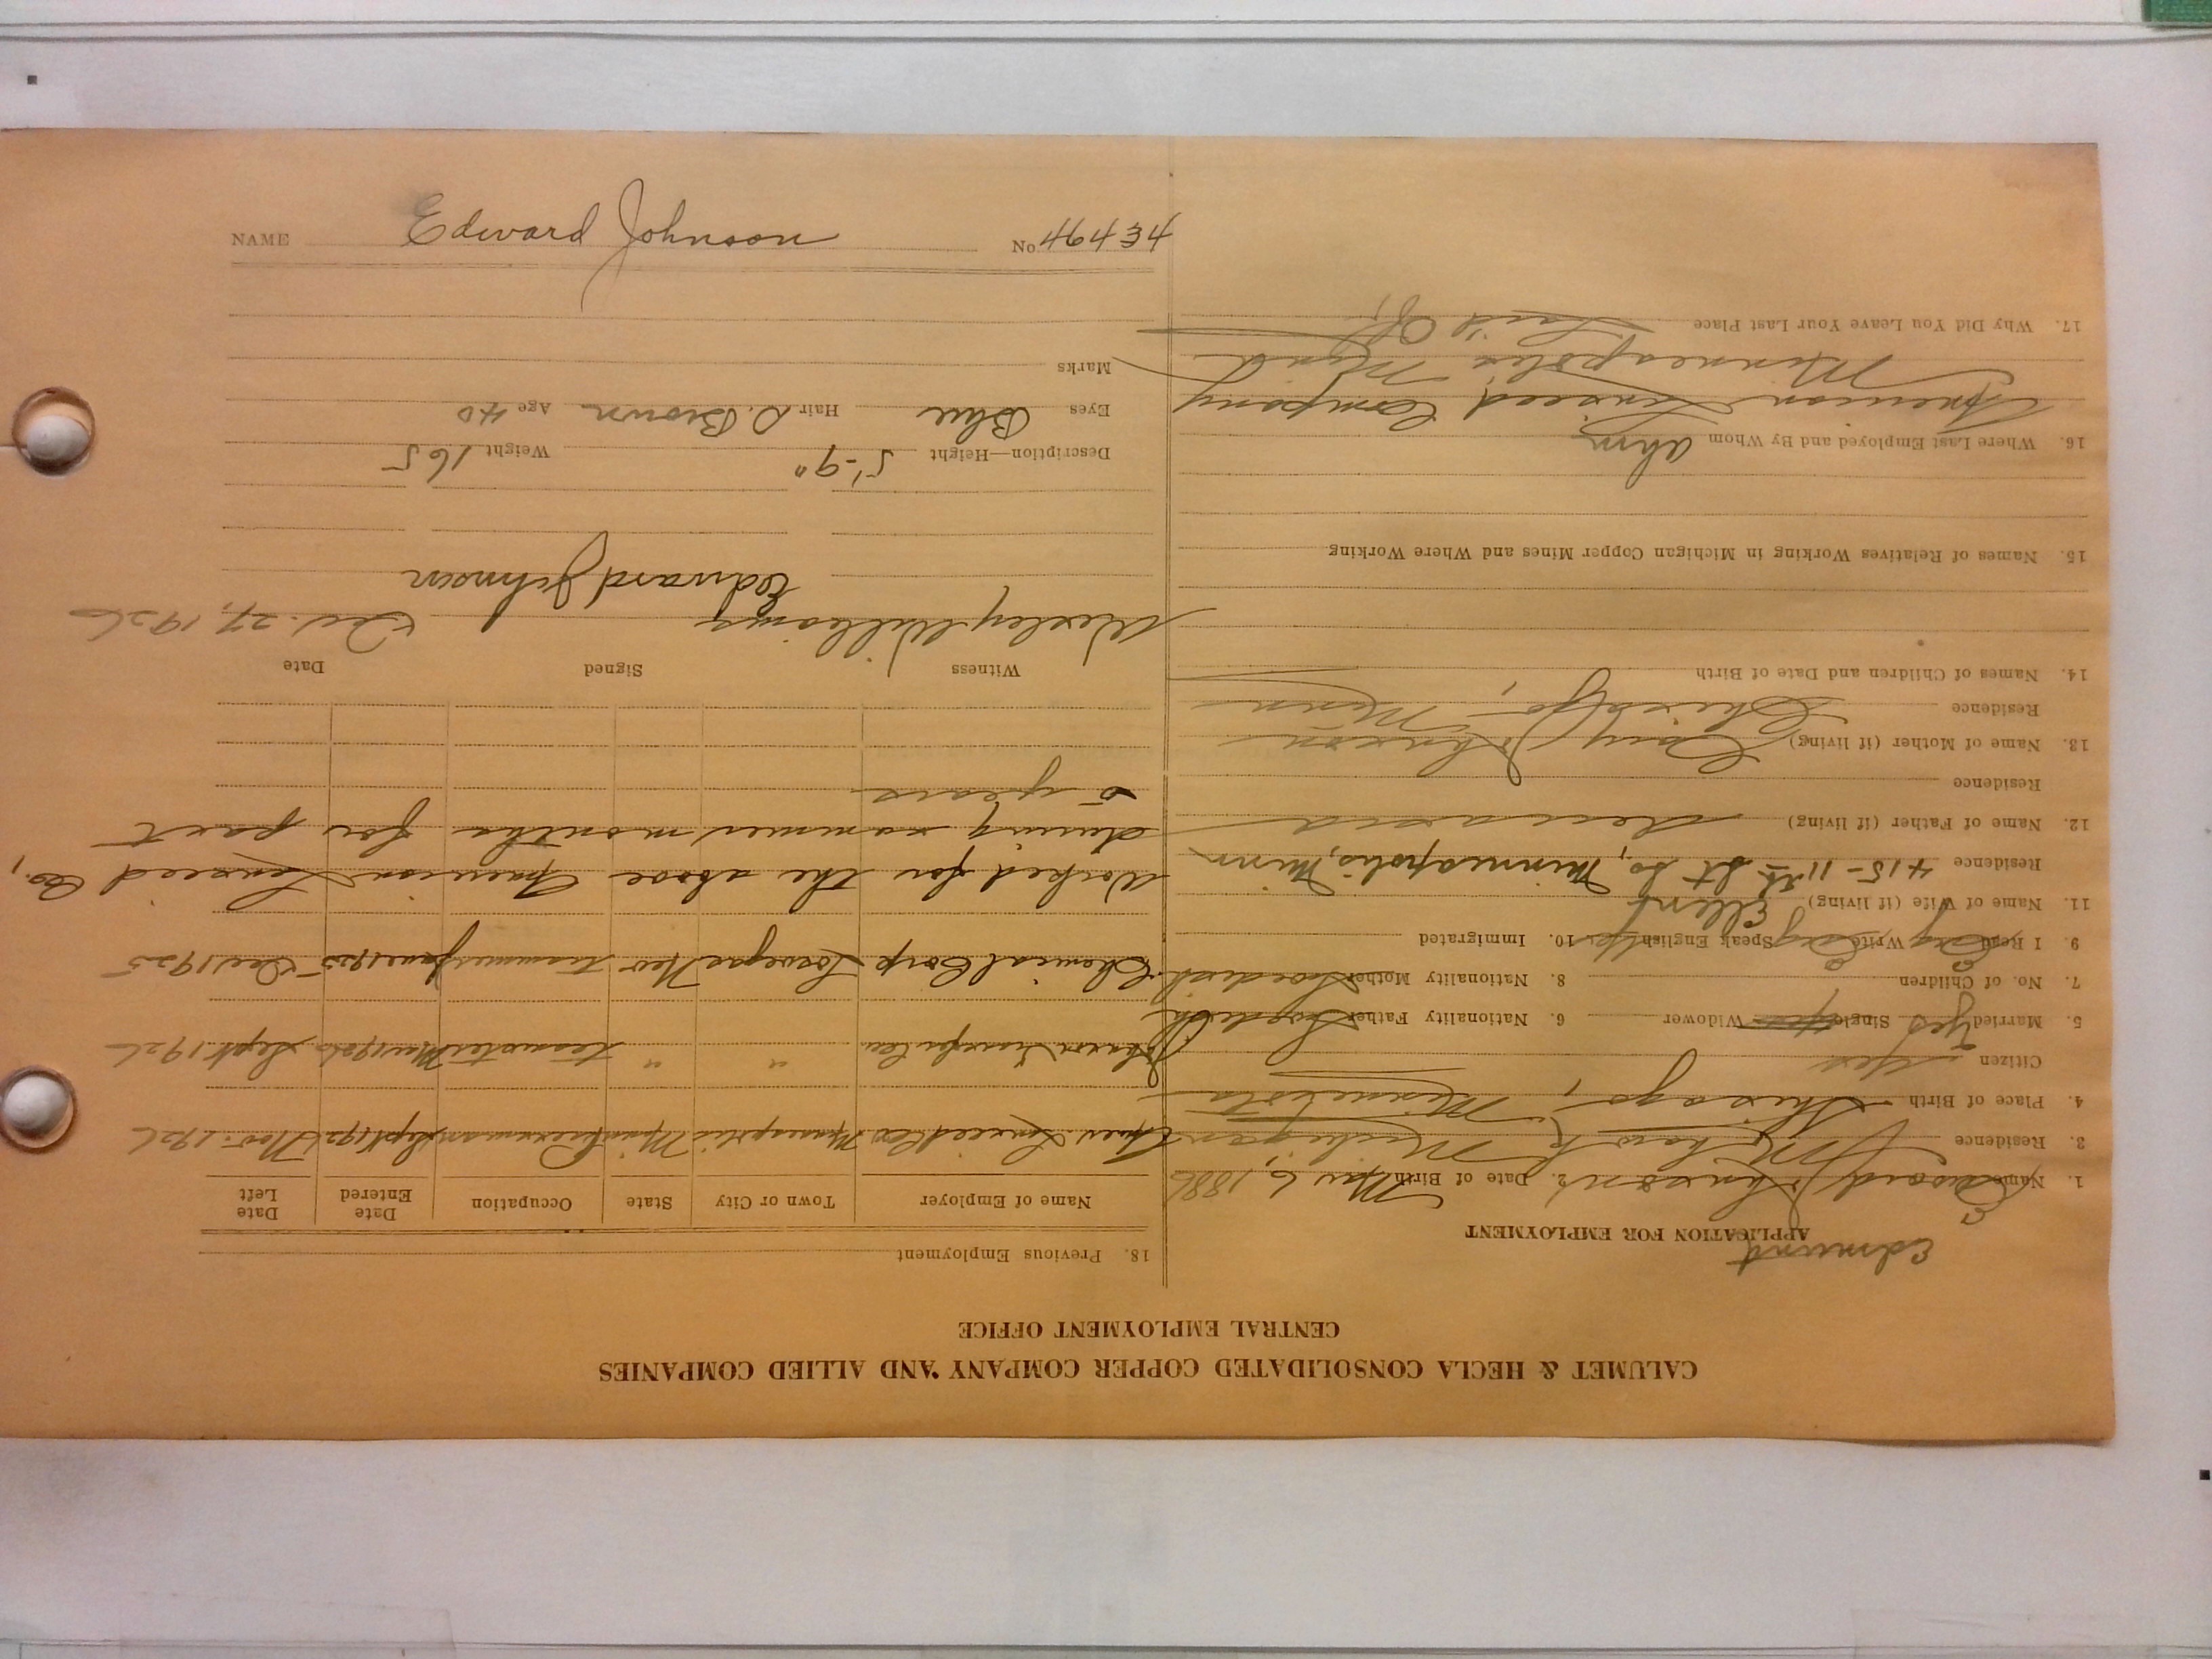 CALUMET & HECLA CONSOLIDATED COPPER COMPANY AND ALLIED COMPANIES
CENTRAL EMPLOYMENT OFFICE
Edmund
APPLICATION FOR EMPLOYMENT
1. Name Edward Johnson 2. Date of Birth Nov 6, 1886
3. Residence Mohawk Michigan
4. Place of Birth Chisago, Minnesota
Citizen Yes
5. Married Yes Single Widower 6. Nationality Father Swedish
7. No. of Children 8. Nationality Mother Swedish
9. I Read Eng Write Eng Speak English Yes 10. Immigrated
11. Name of Wife (if living) Ellen
Residence 415 - 11th St So, Minneapolis, Minn
12. Name of Father (if living) deceased
Residence
13. Name of Mother (if living) Johnson
Residence Chisago, Minn
14. Names of Children and Date of Birth
15. Names of Relatives Working in Michigan Copper Mines and Where Working
16. Where Last Employed and By Whom
American Linseed Company
Minneapolis Minn
17. Why Did You Leave Your Last Place Laid Off,
18. Previous Employment
Name of Employer Town or City State Occupation Date Entered Date Left
Amer Linseed Co Minneapolis Minn Sept 1926 Nov. 1926
Johnson " " teamster Sept 1926
Chemical Corp Nev teamster June 1925 Dec 1925
Worked for the above American Linseed Co.,
during summer months for past
5 years
Witness Signed Date
Wesley Williams Edward Johnson Dec. 27, 1926
Description—Height 5'-9" Weight 165
Eyes Blue Hair D. Brown Age 40
Marks
NAME Edward Johnson No 46434